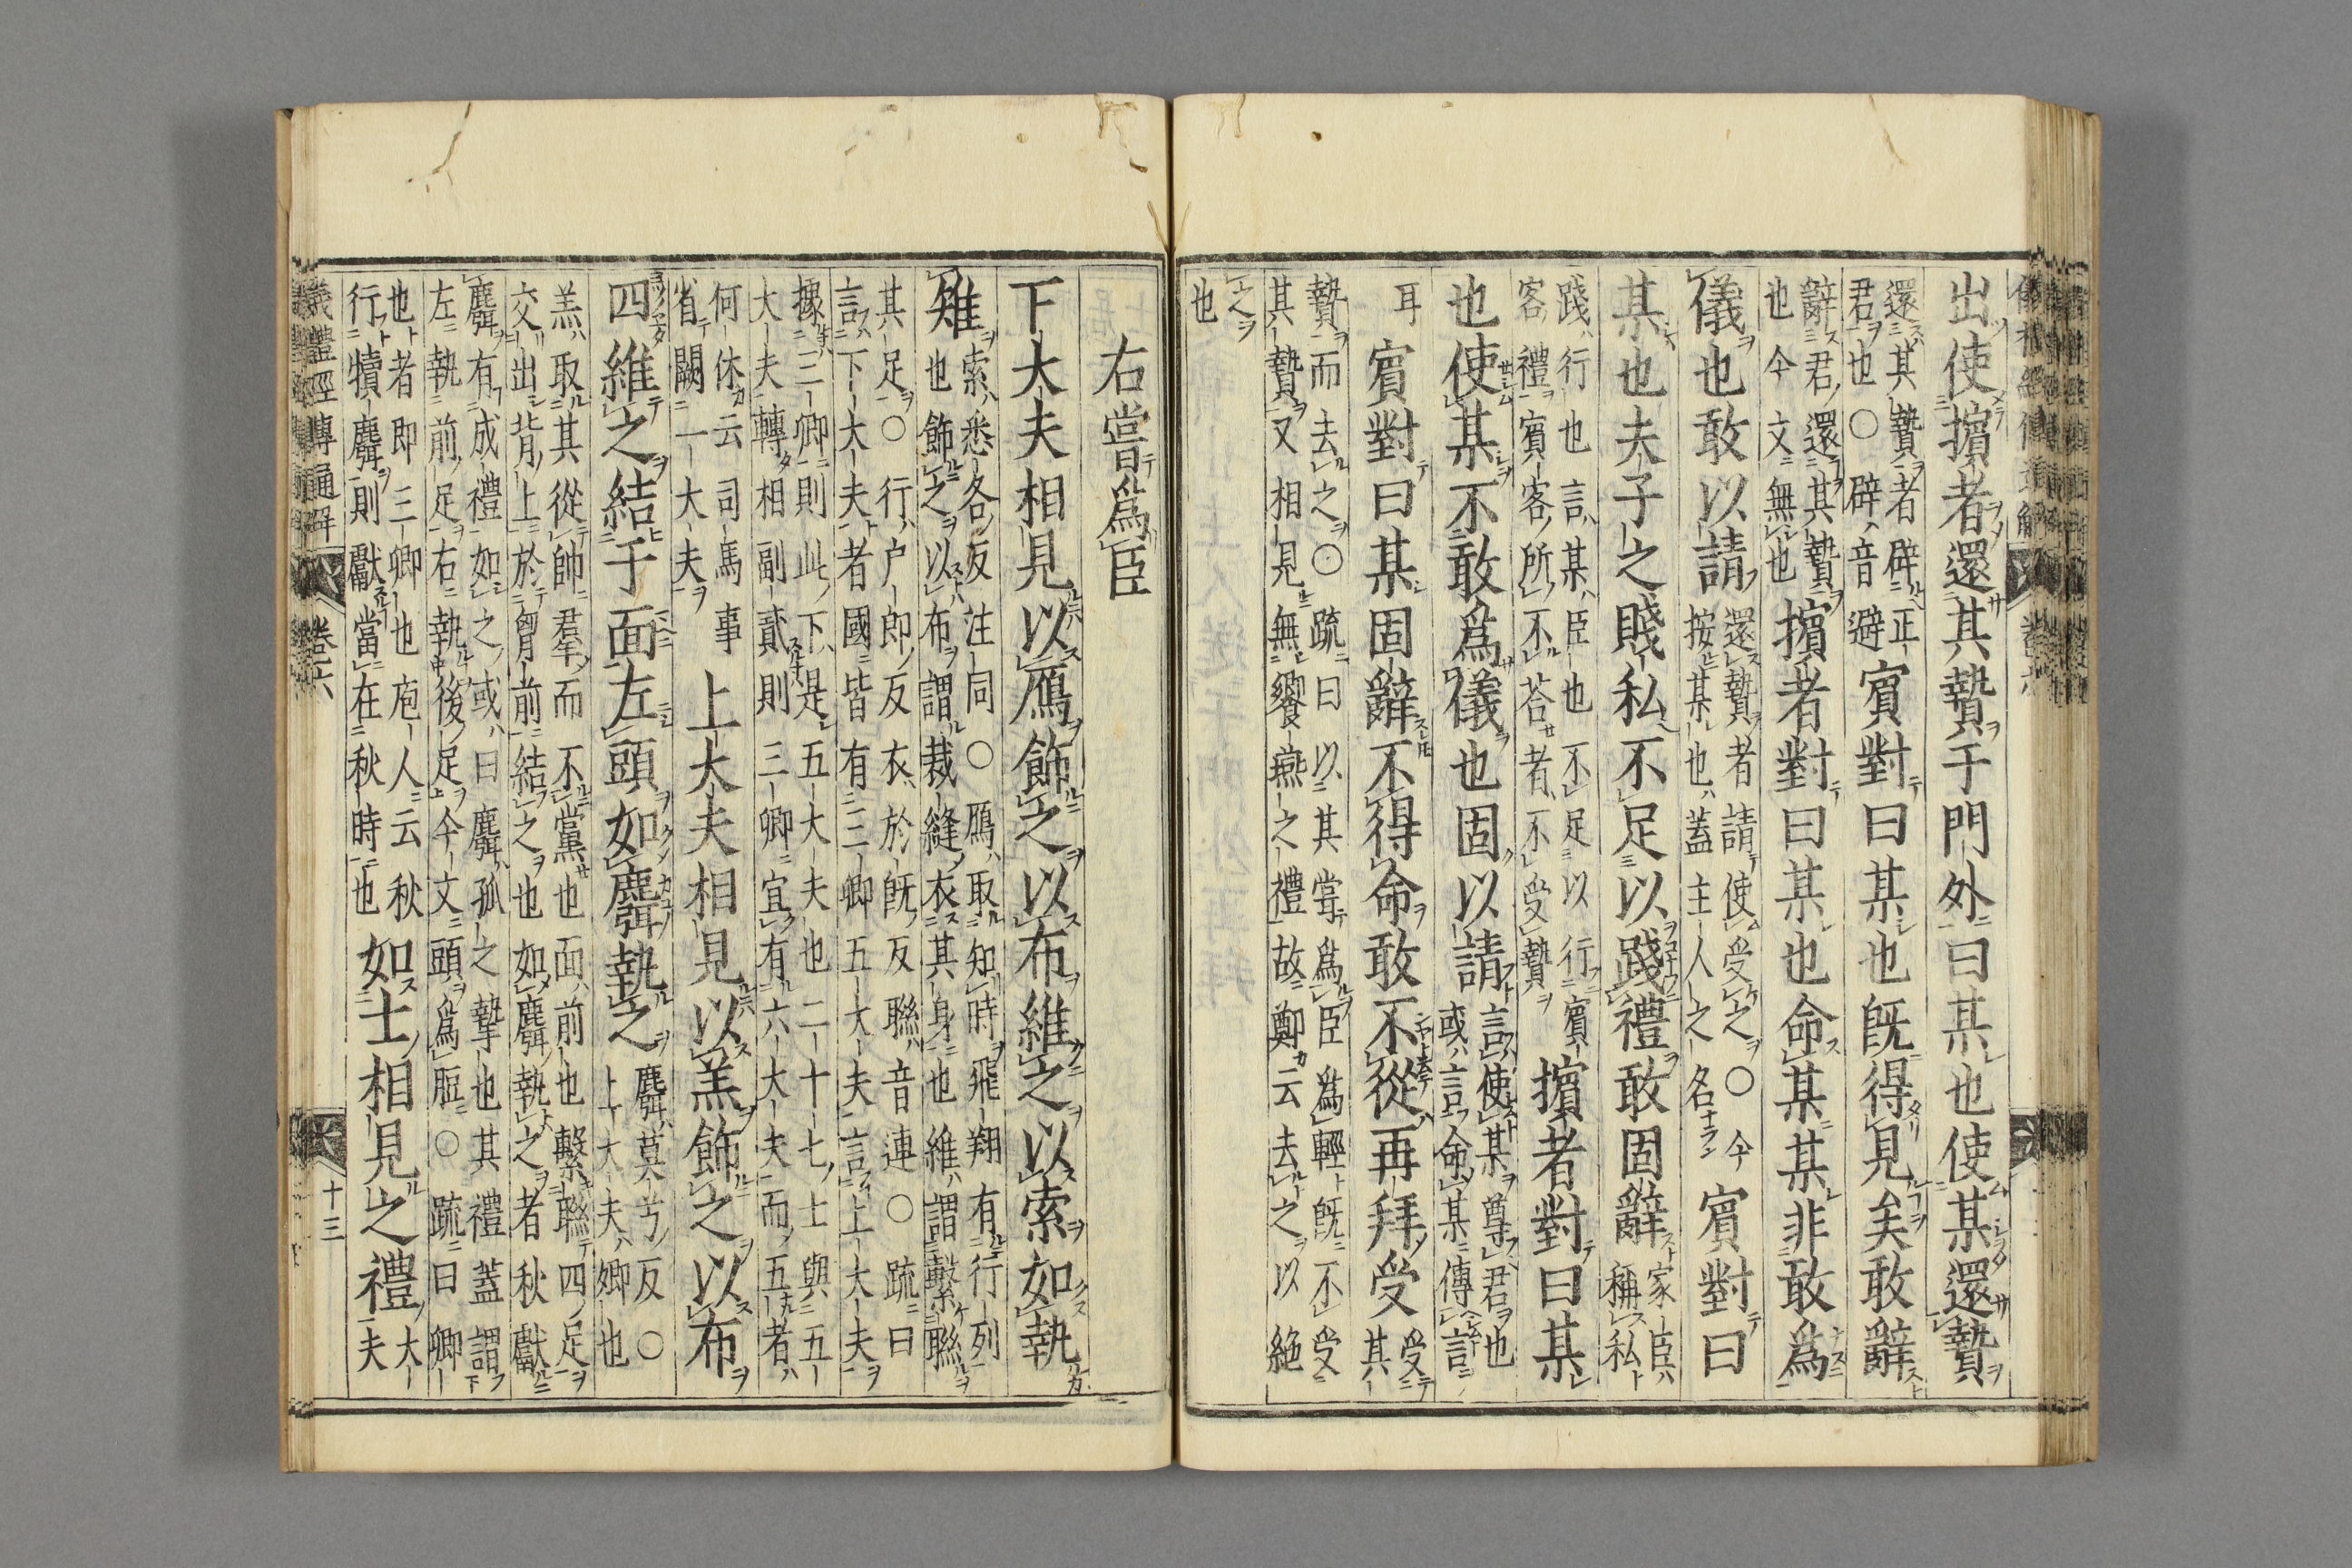 儀禮經傳通解 卷六
出使擯者還其贄于門外曰某也使某還贄
還其贄者辟正
君也○辟音避
賓對曰某也既得見矣敢辭
辭君還其贄
也今文無也
擯者對曰某也命某某非敢爲
儀也敢以請
還贄者請使受之○今
按某也蓋主人之名
賓對曰
某也夫子之賤私不足以踐禮敢固辭
家臣
稱私
踐行也言某臣也不足以行賓
客禮賓客所不荅者不受贄
擯者對曰某
也使某不敢爲儀也固以請
言使某尊君也
或言命某傳言
耳
賓對曰某固辭不得命敢不從再拜受
受
其
贄而去之○疏曰以其嘗爲臣爲輕既不受
其贄又相見無饗燕之禮故鄭云去之以絶
之
也
右嘗爲臣
下大夫相見以鴈飾之以布維之以索如執
雉
索悉各反注同○鴈取知時飛翔有行列
也飾之以布謂裁縫衣其身也維謂繫聯
其足○行户郎反衣於既反聯音連○疏曰
言下大夫者國皆有三卿五大夫言上大夫
據三卿則此下是五大夫也二十七士與五
大夫轉相副貳則三卿宜有六大夫而五者
何休云司馬事
省闕一大夫
上大夫相見以羔飾之以布
四維之結于面左頭如麛執之
麛莫兮反○
上大夫卿也
羔取其從帥羣而不黨也面前也繫聯四足
交出背上於胷前結之也如麛執之者秋獻
麛有成禮如之或曰麛孤之摯也其禮蓋謂
左執前足右執後足今文頭爲脰○疏曰卿
也者即三卿也庖人云秋
行犢麛則獻當在秋時也
如士相見之禮
大
夫
儀禮經傳通解 卷六 十三